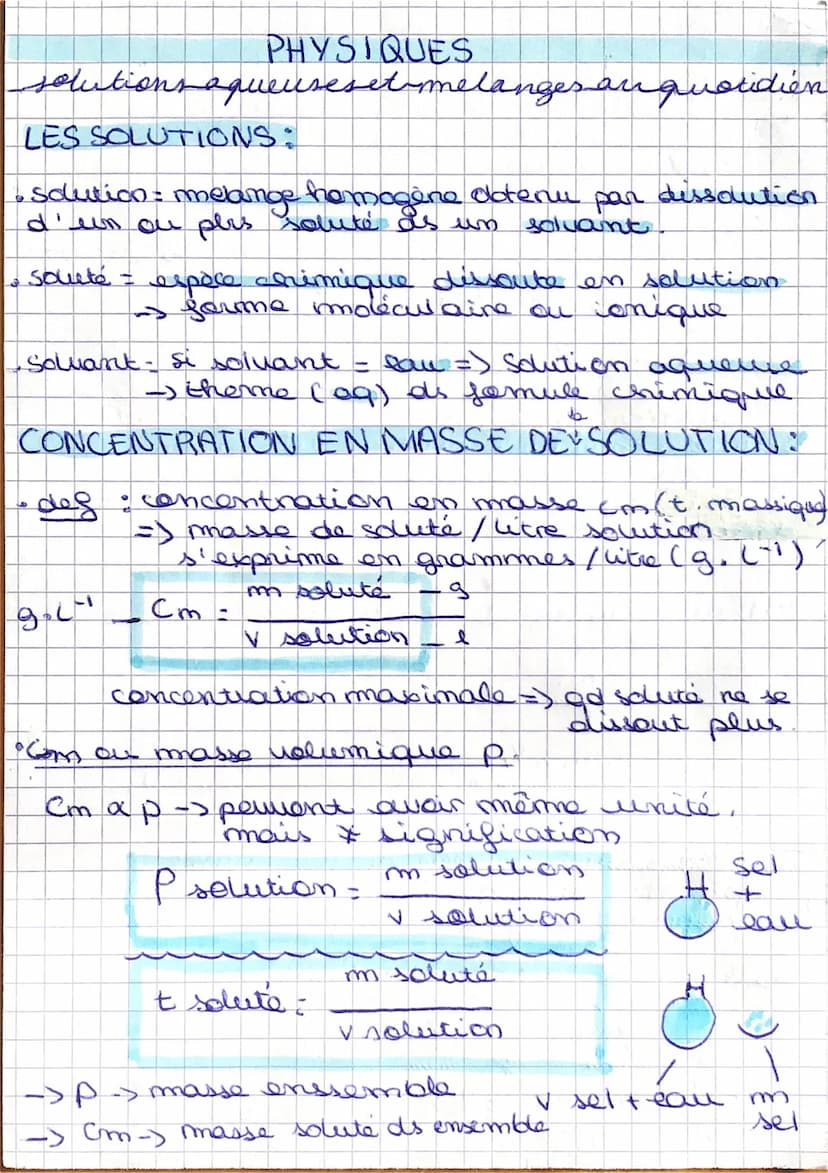 PHYSIQUES
solutions aqueuses et melanges au quotidien
LES SOLUTIONS :
. solution = melange homogène obtenu par dissolution
d'un ou plrs soluté ds un solvant.
. soluté = espèce chimique dissoute en solution
-> forme moléculaire ou ionique
. solvant = si solvant = eau => solution aqueuse
-> theme (aq) ds formule chimique
la
CONCENTRATION EN MASSE DE SOLUTION :
. def : concentration en masse cm (t. massique)
=> masse de soluté / litre solution
s'exprime en grammes / litre (g. L-1)
m soluté - g
g.L-1 - Cm =
v solution - l
concentration maximale => qd soluté ne se
dissout plus.
° Cm ou masse volumique ρ.
Cm α ρ -> peuvent avoir même unité,
mais ≠ signification
m solution
ρ solution =
v solution
sel
+
eau
m soluté
t soluté =
v solution
-> ρ -> masse enssemble
v sel + eau
m
sel
-> Cm -> masse soluté ds ensemble